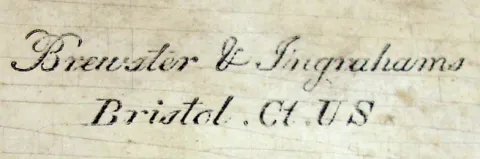 Brewster & Ingrahams
Bristol . Ct . U S